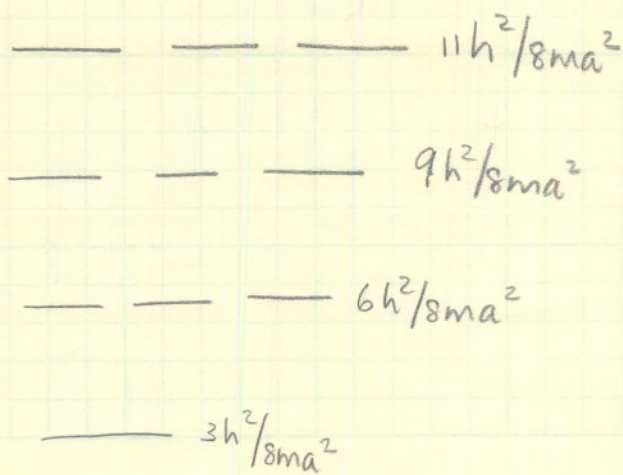 11h²/8ma²
9h²/8ma²
6h²/8ma²
3h²/8ma²